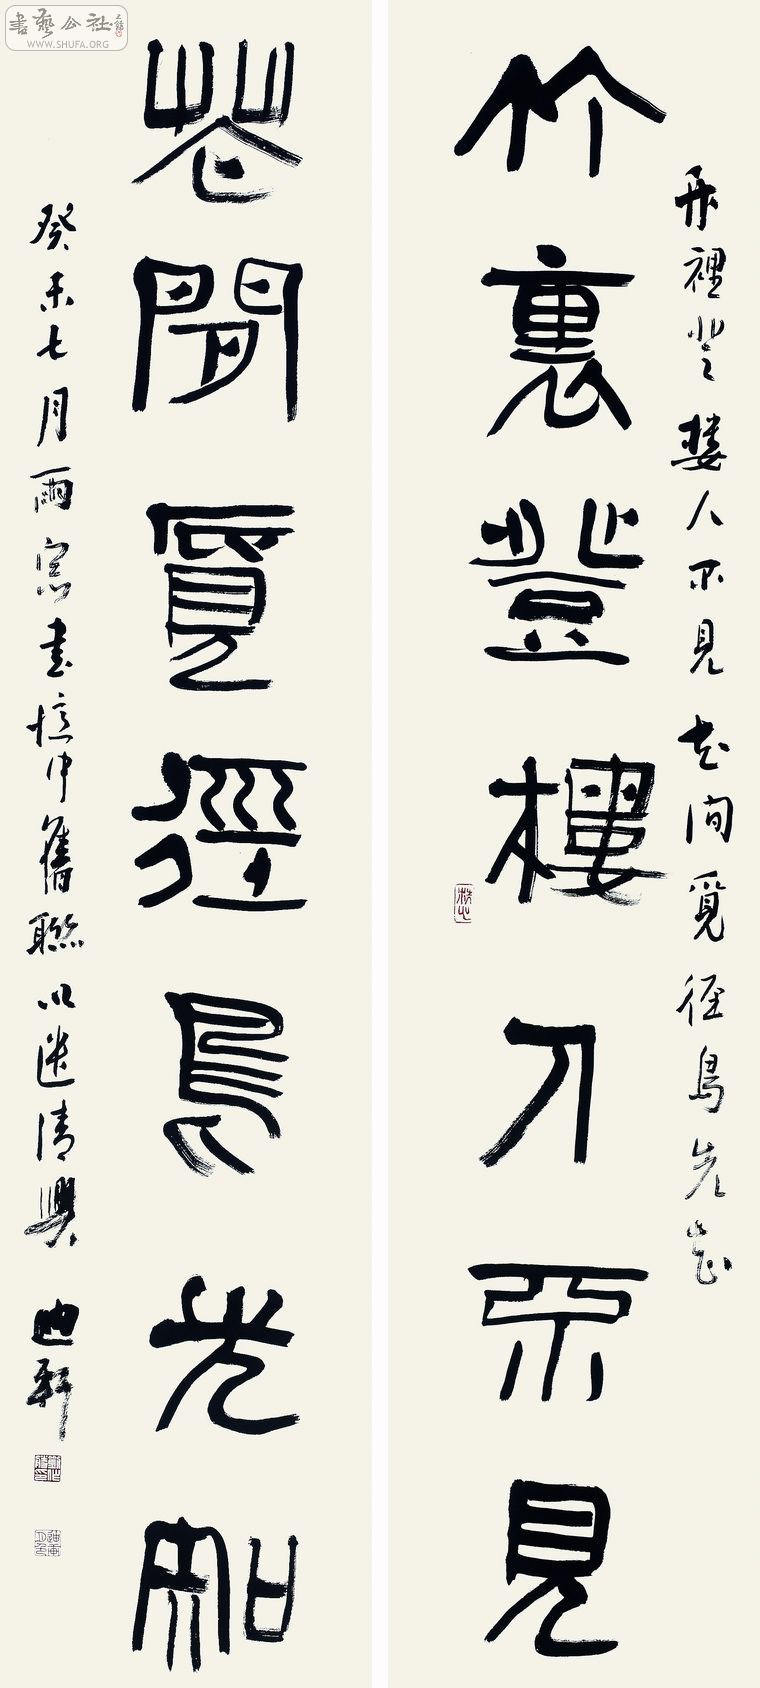 竹裏登樓人不見
花間覓徑鳥先知
竹裡登樓人不見花间覓徑鳥先知
癸未七月雨窓書憶中舊聯以遣清興
迪軒
書藝公社
WWW.SHUFA.ORG